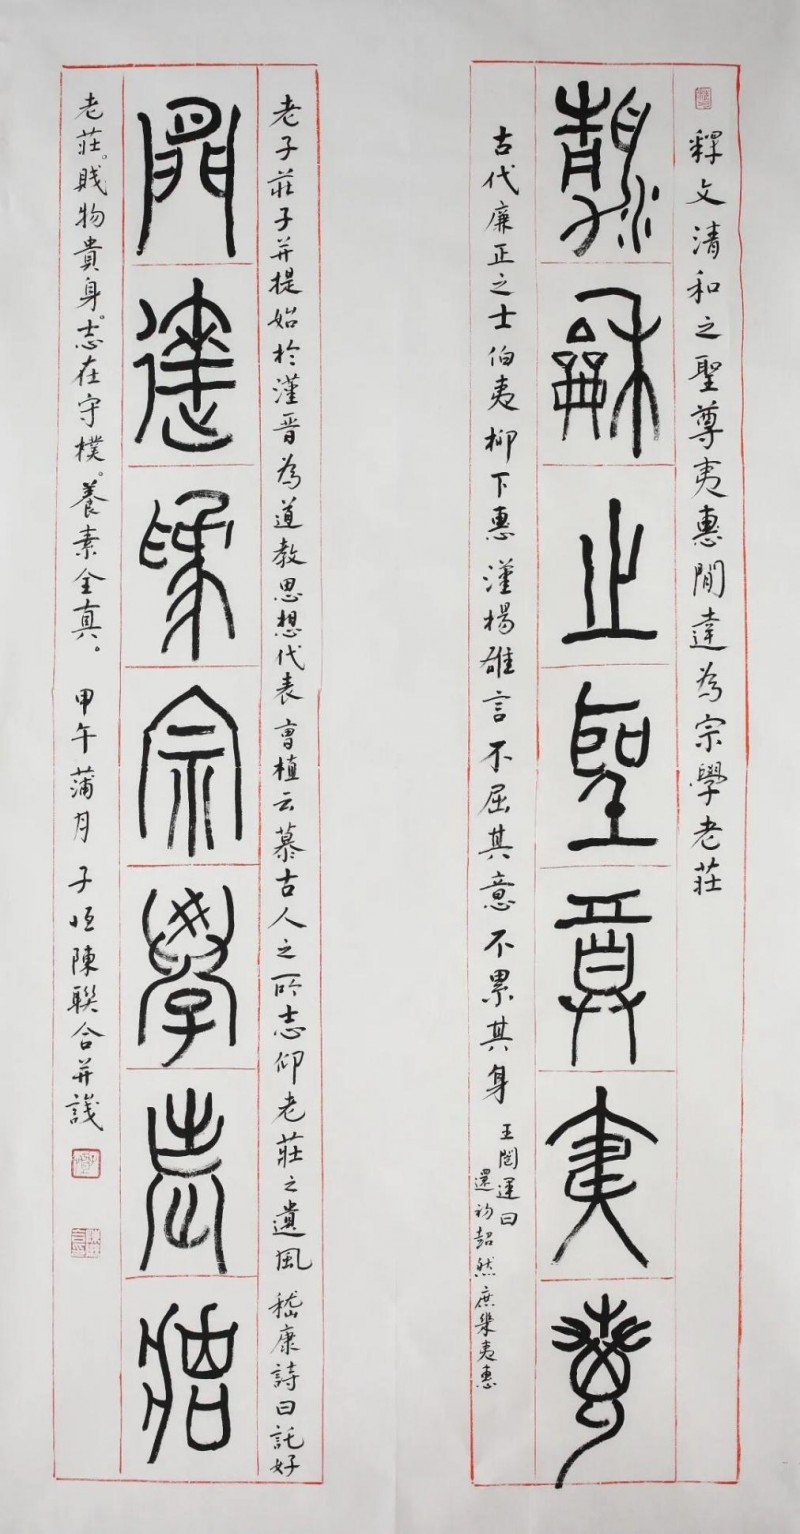 釋文清和之聖尊夷惠閒達為宗學老莊
清龢之聖尊夷惠
古代廉正之士伯夷柳下惠漢楊雄言不屈其意不累其身
王闓運曰
還初超然庶幾夷惠
老子莊子并提始於漢晉為道教思想代表曹植云慕古人之所志仰老莊之遺風嵇康詩曰託好
閒達為宗學老莊
老莊。賤物貴身。志在守樸。養素全真。甲午蒲月子恒陳聯合并識